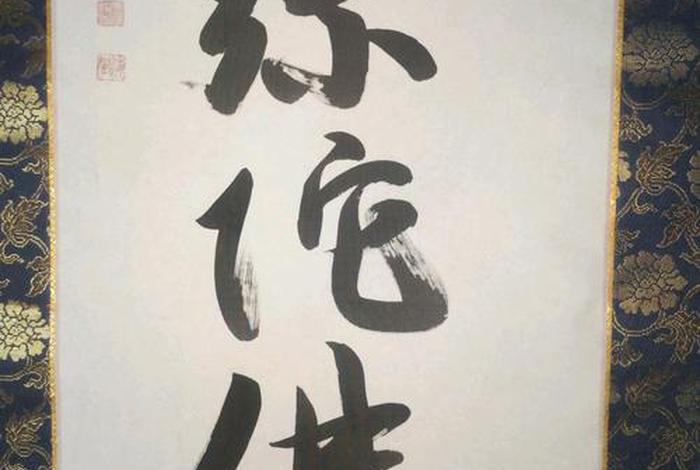 弥
陀
佛